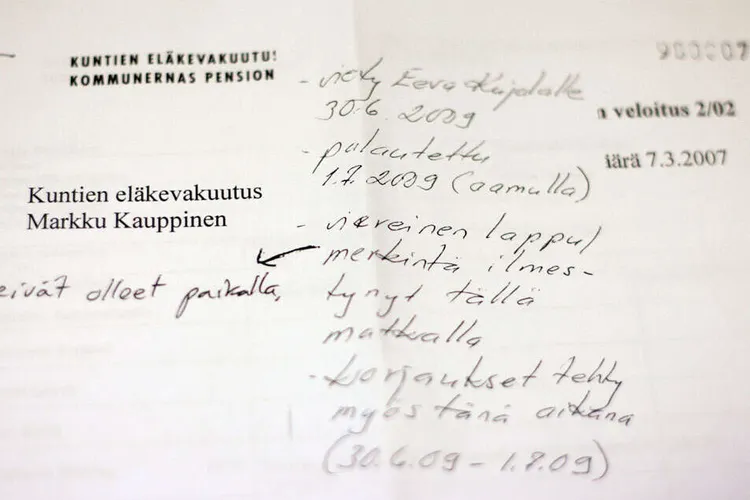 KUNTIEN ELÄKEVAKUUTU
KOMMUNERNAS PENSION
900007
n veloitus 2/02
iärä 7.3.2007
Kuntien eläkevakuutus
Markku Kauppinen
eivät olleet paikalla,
- viety Eeva Kujalalle
30.6. 2009
- palautettu
1.7.2009 (aamulla)
- viereinen lappu/
merkintä ilmes-
tynyt tällä
matkalla
- korjaukset tehty
myös tänä aikana
(30.6.09 - 1.7.09)